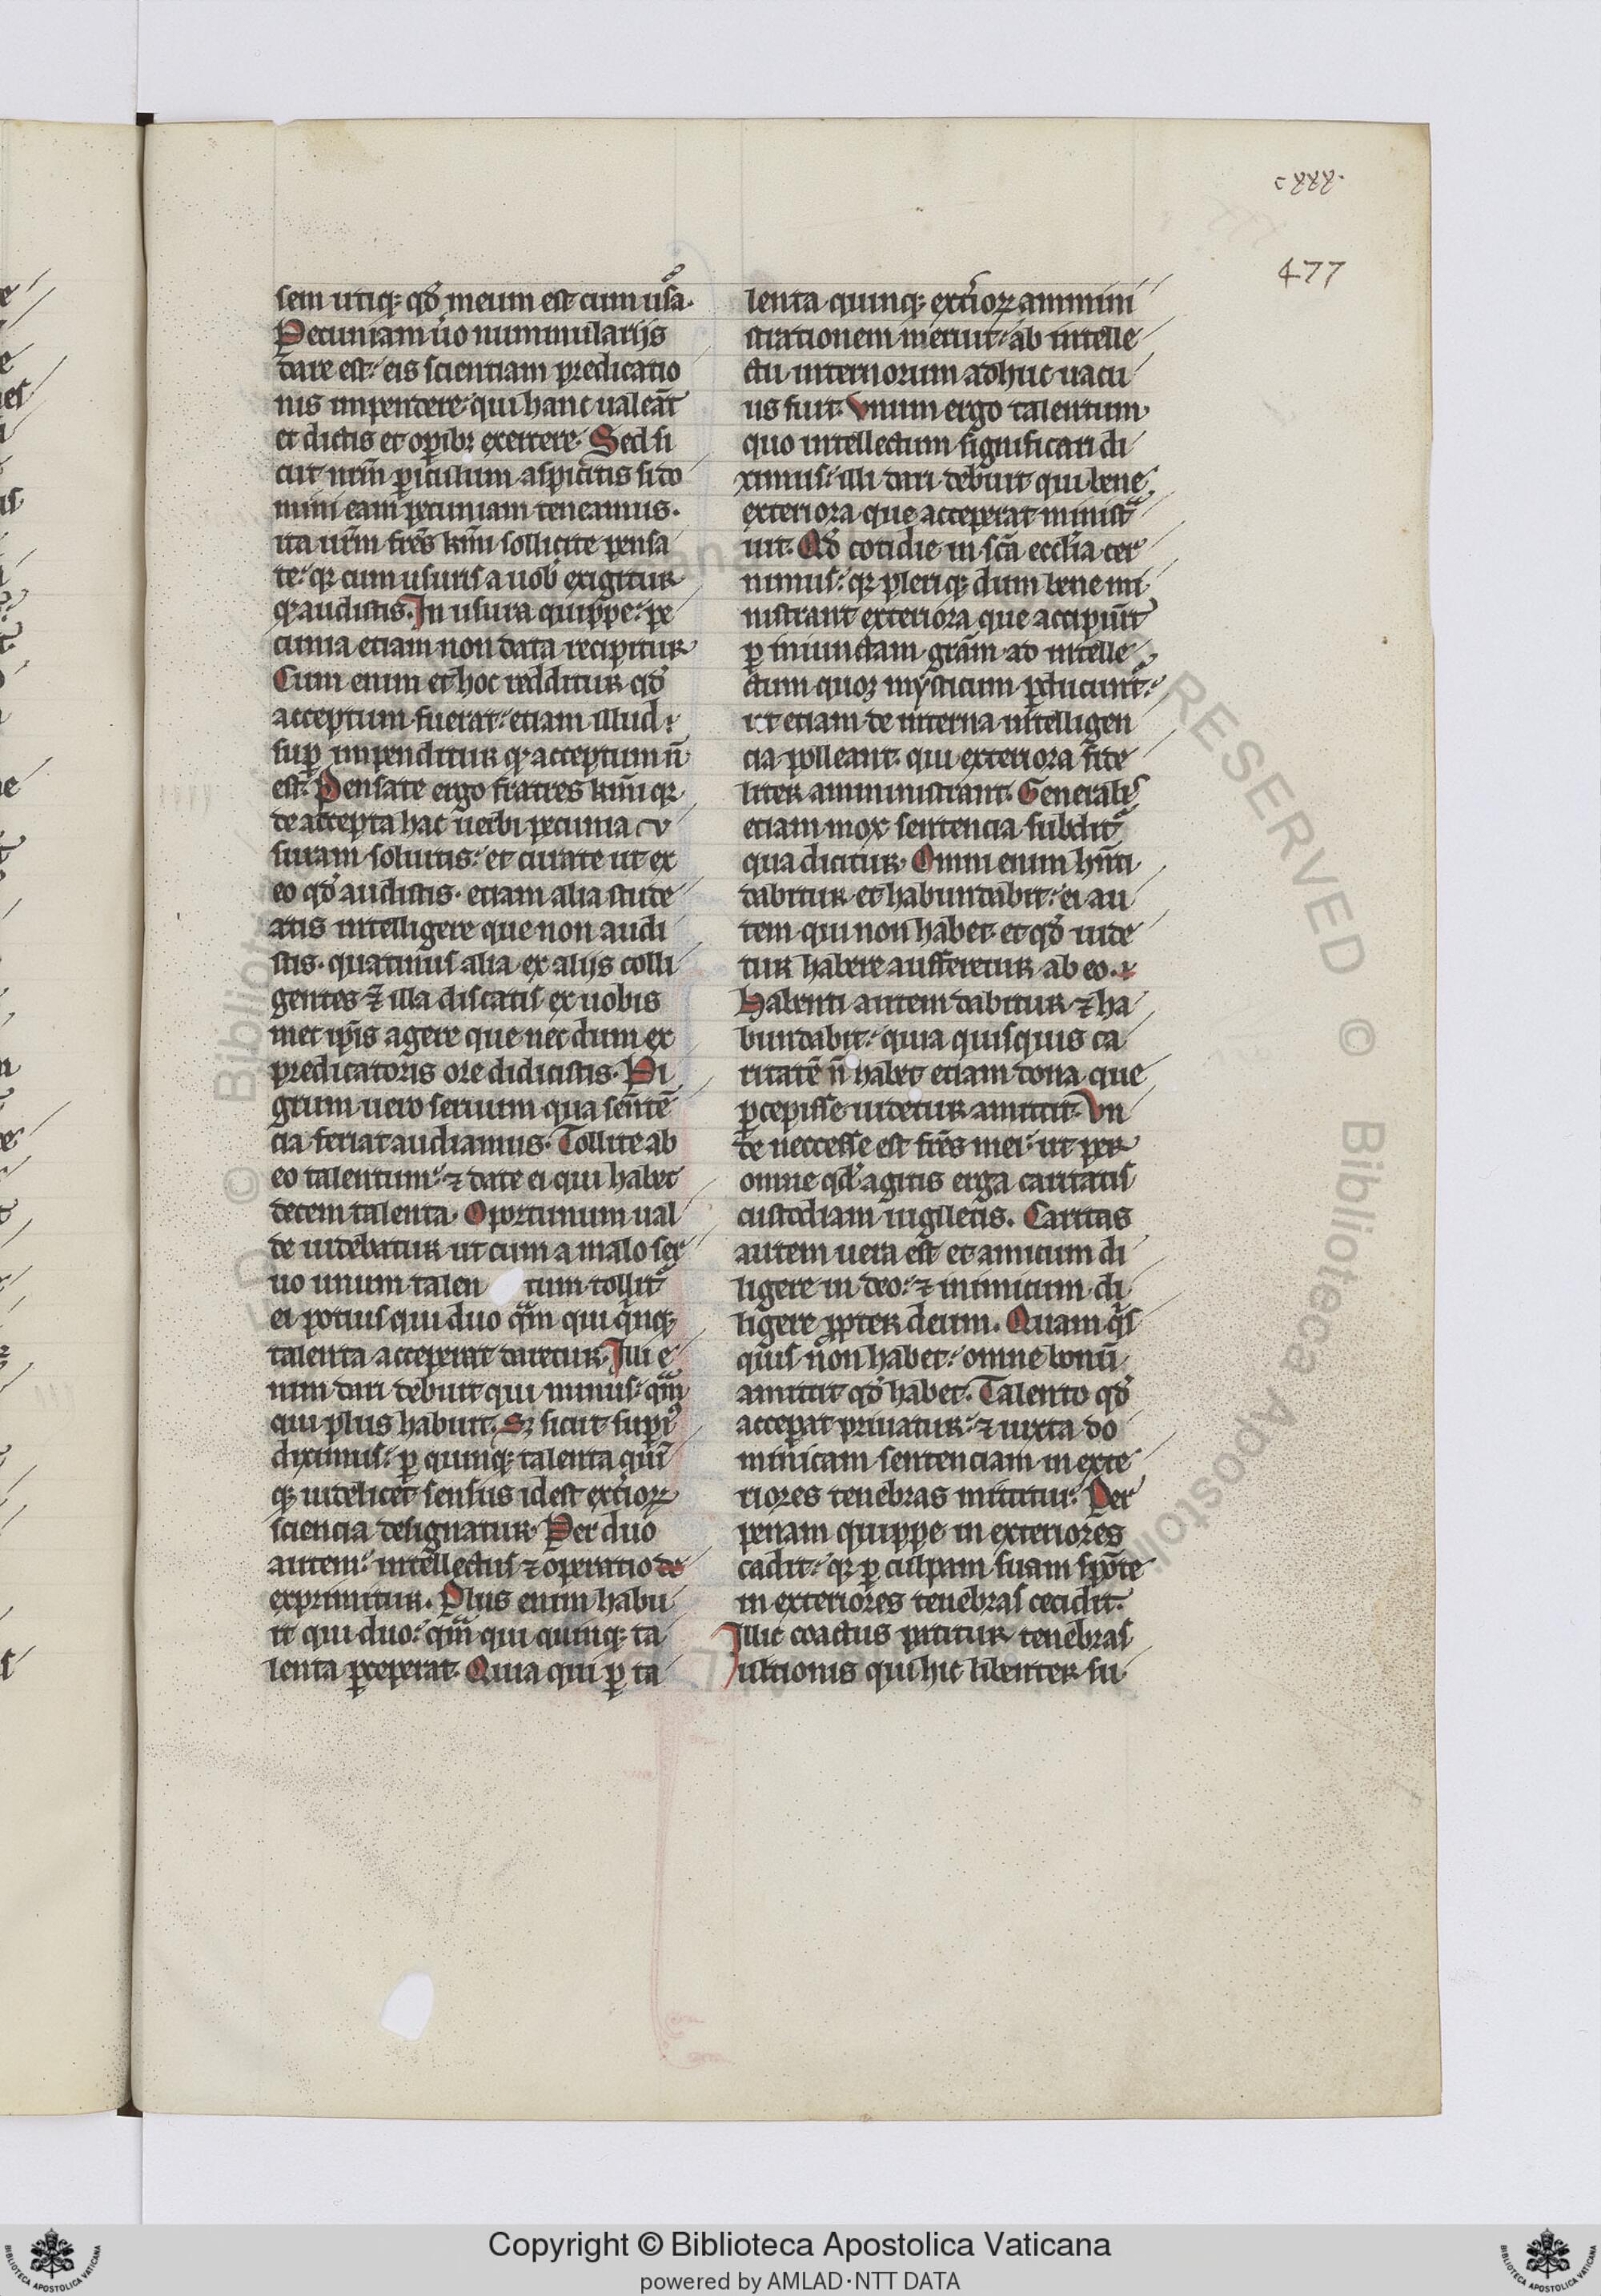 cxxx.
477
sem utiqꝫ qđ meum est cum usͣa.
Pecuniam u̾o nummularijs
dare est. eis scientiam predicatio
nis impendere. qui hanc ualeāt
et dictis et oꝑibꝫ exercere. Sed si
cut nr̄m ꝑiculum aspicitis si do
mini eam pecuniam teneamus.
ita ur̄m fr̄es kmi̅ sollicite pensa
te. qꝛ cum usuris a uob̾ exigitur
qꝛ audistis. In usura quippe. pe
cunia etiam non data recipitur
Cum enim et hoc redditur qđ
acceptum fuerat. etiam illud
suꝑ impenditur qꝛ acceptum n̄
est. Pensate ergo fratres kmi̅ qꝛ
de accepta hac uerbi pecunia u
suram soluitis. et curate ut ex
eo qđ audistis. etiam alia stude
atis intelligere que non audi
stis. quatinus alia ex alijs colli
gentes ⁊̄ illa discatis ex uobis
met ip̄is agere que nec dum ex
predicatoris ore didicistis. Pi
grum uero seruum qua sentē
cia feriat audiamus. Tollite ab
eo talentum. ⁊ date ei qui habet
decem talenta. Oportunum ual
de uidebatur ut cum a malo ser
uo unum talen tum tollit᷑
ei potius qui duo qͣm qui qͥnqꝫ
talenta acceperat daretur. Illi e
nim dari debuit qui minus. qͣm
qui plus habuit. Sꝫ sicut supiꝰ
diximus. ꝑ quinqꝫ talenta qui̅
qꝫ uidelicet sensus idest ext̾ioꝝ
sciencia designatur. Per duo
autem. intellectus ⁊ operatio de
exprimitur. Plus enim habu
it qui duo. qͣm qui quinqꝫ ta
lenta ꝑceperat. Quia qui ꝑ ta
lenta quinqꝫ ext̾ioꝝ ammini
strationem meruit. ab intelle
ctu interiorum adhuc uacu
us fuit. Vnum ergo talentum
quo intellectum significari di
ximus. illi dari debuit qui bene
exteriora que acceperat ministͣ
uit. Qđ cotidie in sc̄a eccl̄ia cer
nimus. qꝛ pleriqꝫ dum bene mi
nistrant exteriora que accipiūt
ꝑ iniunctam gr̄am ad intelle
ctum quoqꝫ mysticum ꝑducunt᷑.
ut etiam de interna intelligen
cia polleant. qui exteriora fide
liter amministrant. Generalis
etiam mox sentencia subdit᷑
qua dicitur. Omni enim hn̄ti
dabitur et habundabit. ei au
tem qui non habet et qđ uide
tur habere aufferetur ab eo.
Habenti autem dabitur ⁊ ha
bundabit. quia quisquis ca
ritatē n̄ habet etiam dona que
ꝑcepisse uidetur amittit. Vn
de neccesse est fr̄es mei. ut per
omne qđ agitis erga caritatis
custodiam uigiletis. Caritas
autem uera est et amicum di
ligere in deo. ⁊ inimicum di
ligere ꝓpter deum. Quam qͥs
qͥs non habet. omne bonū
amittit qđ habet. Talento qđ
acceꝑat priuatur. ⁊ iuxta do
minicam sentenciam in exte
riores tenebras mittitur. Per
penam quippe in exteriores
cadit. qꝛ ꝑ culpam suam spōte
in exteriores tenebras cecidit.
Illic coactus patitur tenebras
ultionis qui hic libenter su
Copyright © Biblioteca Apostolica Vaticana
powered by AMLAD·NTT DATA